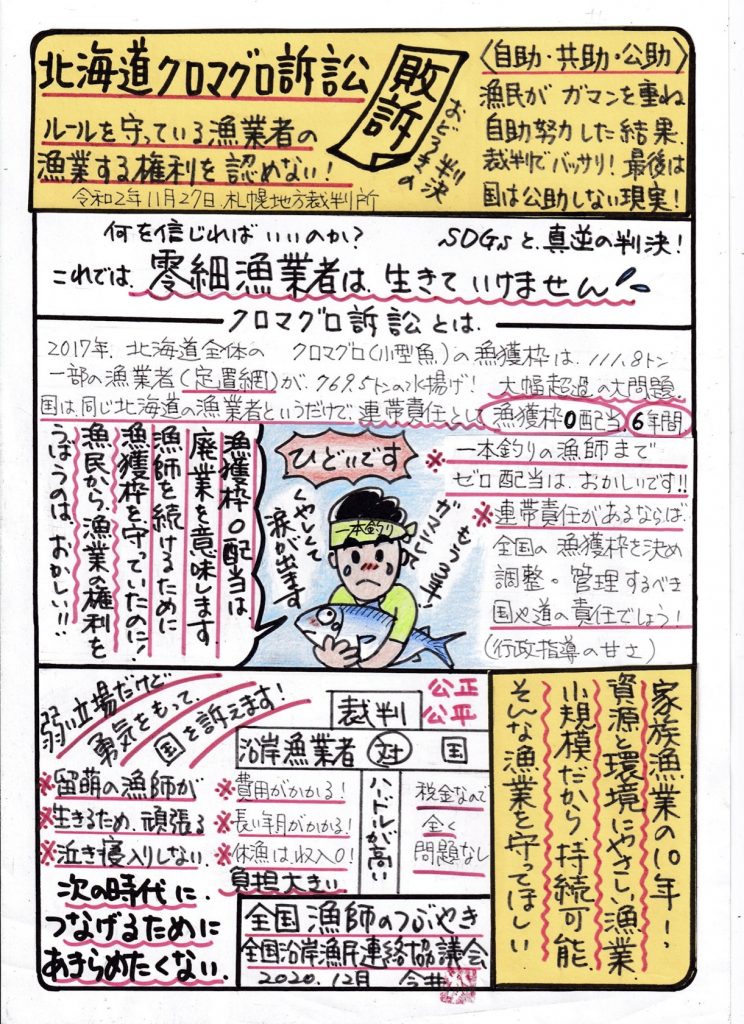 北海道クロマグロ訴訟
敗訴
おどろきの
判決
ルールを守っている漁業者の
漁業する権利を認めない!
令和2年11月27日.札幌地方裁判所
〈自助・共助・公助〉
漁民がガマンを重ね
自助努力した結果.
裁判でバッサリ!最後は
国は公助しない現実!
何を信じればいいのか?
SDGsと、真逆の判決!
これでは、零細漁業者は、生きていけません
クロマグロ訴訟とは、
2017年、北海道全体の クロマグロ(小型魚)の漁獲枠は、111.8トン
一部の漁業者(定置網)が、769.5トンの水揚げ! 大幅超過の大問題.
国は、同じ北海道の漁業者というだけで、連帯責任として漁獲枠0配当、6年間
漁獲枠0配当は
廃業を意味します.
漁師を続けるために
漁獲枠を守っていたのに!
漁民から漁業の権利を
うばうのは、おかしい!!
ひどいです
くやしくて
涙が出ます
一本釣り
ガマンして
もう3年!
※一本釣りの漁師まで
ゼロ配当は、おかしいです!!
※連帯責任があるならば、
全国の漁獲枠を決め
調整・管理するべき
国や道の責任でしょう!
(行政指導の甘さ)
弱い立場だけど
勇気をもって、
国を訴えます!
※留萌の漁師が
※生きるため、頑張る
※泣き寝入りしない、
次の時代に、
つなげるために
あきらめたくない.
公正
公平
裁判
沿岸漁業者 対 国
※費用がかかる!
※長い年月がかかる!
※休漁は、収入0!
負担大きい
ハードルが高い
税金なので
全く
問題なし
全国漁師のつぶやき
全国沿岸漁民連絡協議会
2020.12月 今井
家族漁業の10年!、
資源と環境にやさしい漁業
小規模だから、持続可能
そんな漁業を守ってほしい